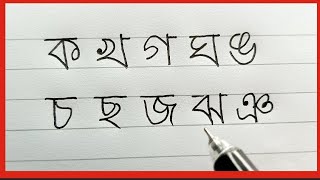 ক খ গ ঘ ঙ
চ ছ জ ঝ ঞ